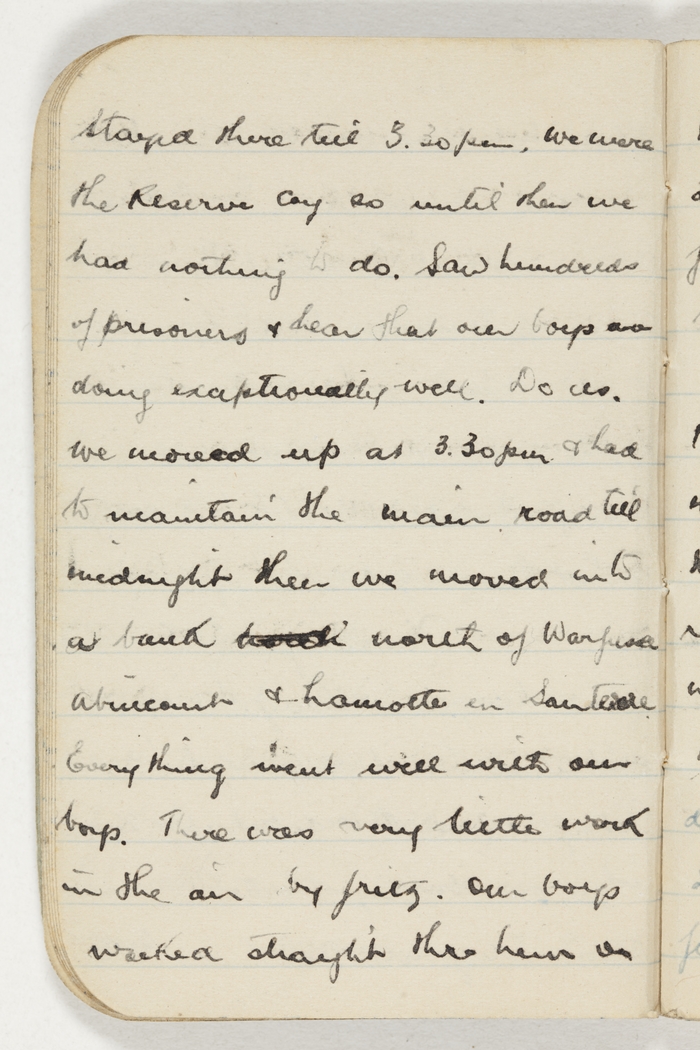 Stayed there till 3.30pm, we were
the Reserve Coy so until then we
had nothing to do. Saw hundreds
of prisoners & hear that our boys are
doing exaptionally well. Do us.
we moved up at 3.30pm & had
to maintain the main road till
midnight then we moved into
a bank north of Warfusee
Abincourt & Lamotte en Santerre
Everything went well with our
boys. There was very little work
in the air by fritz. Our boys
walked straight thro him on